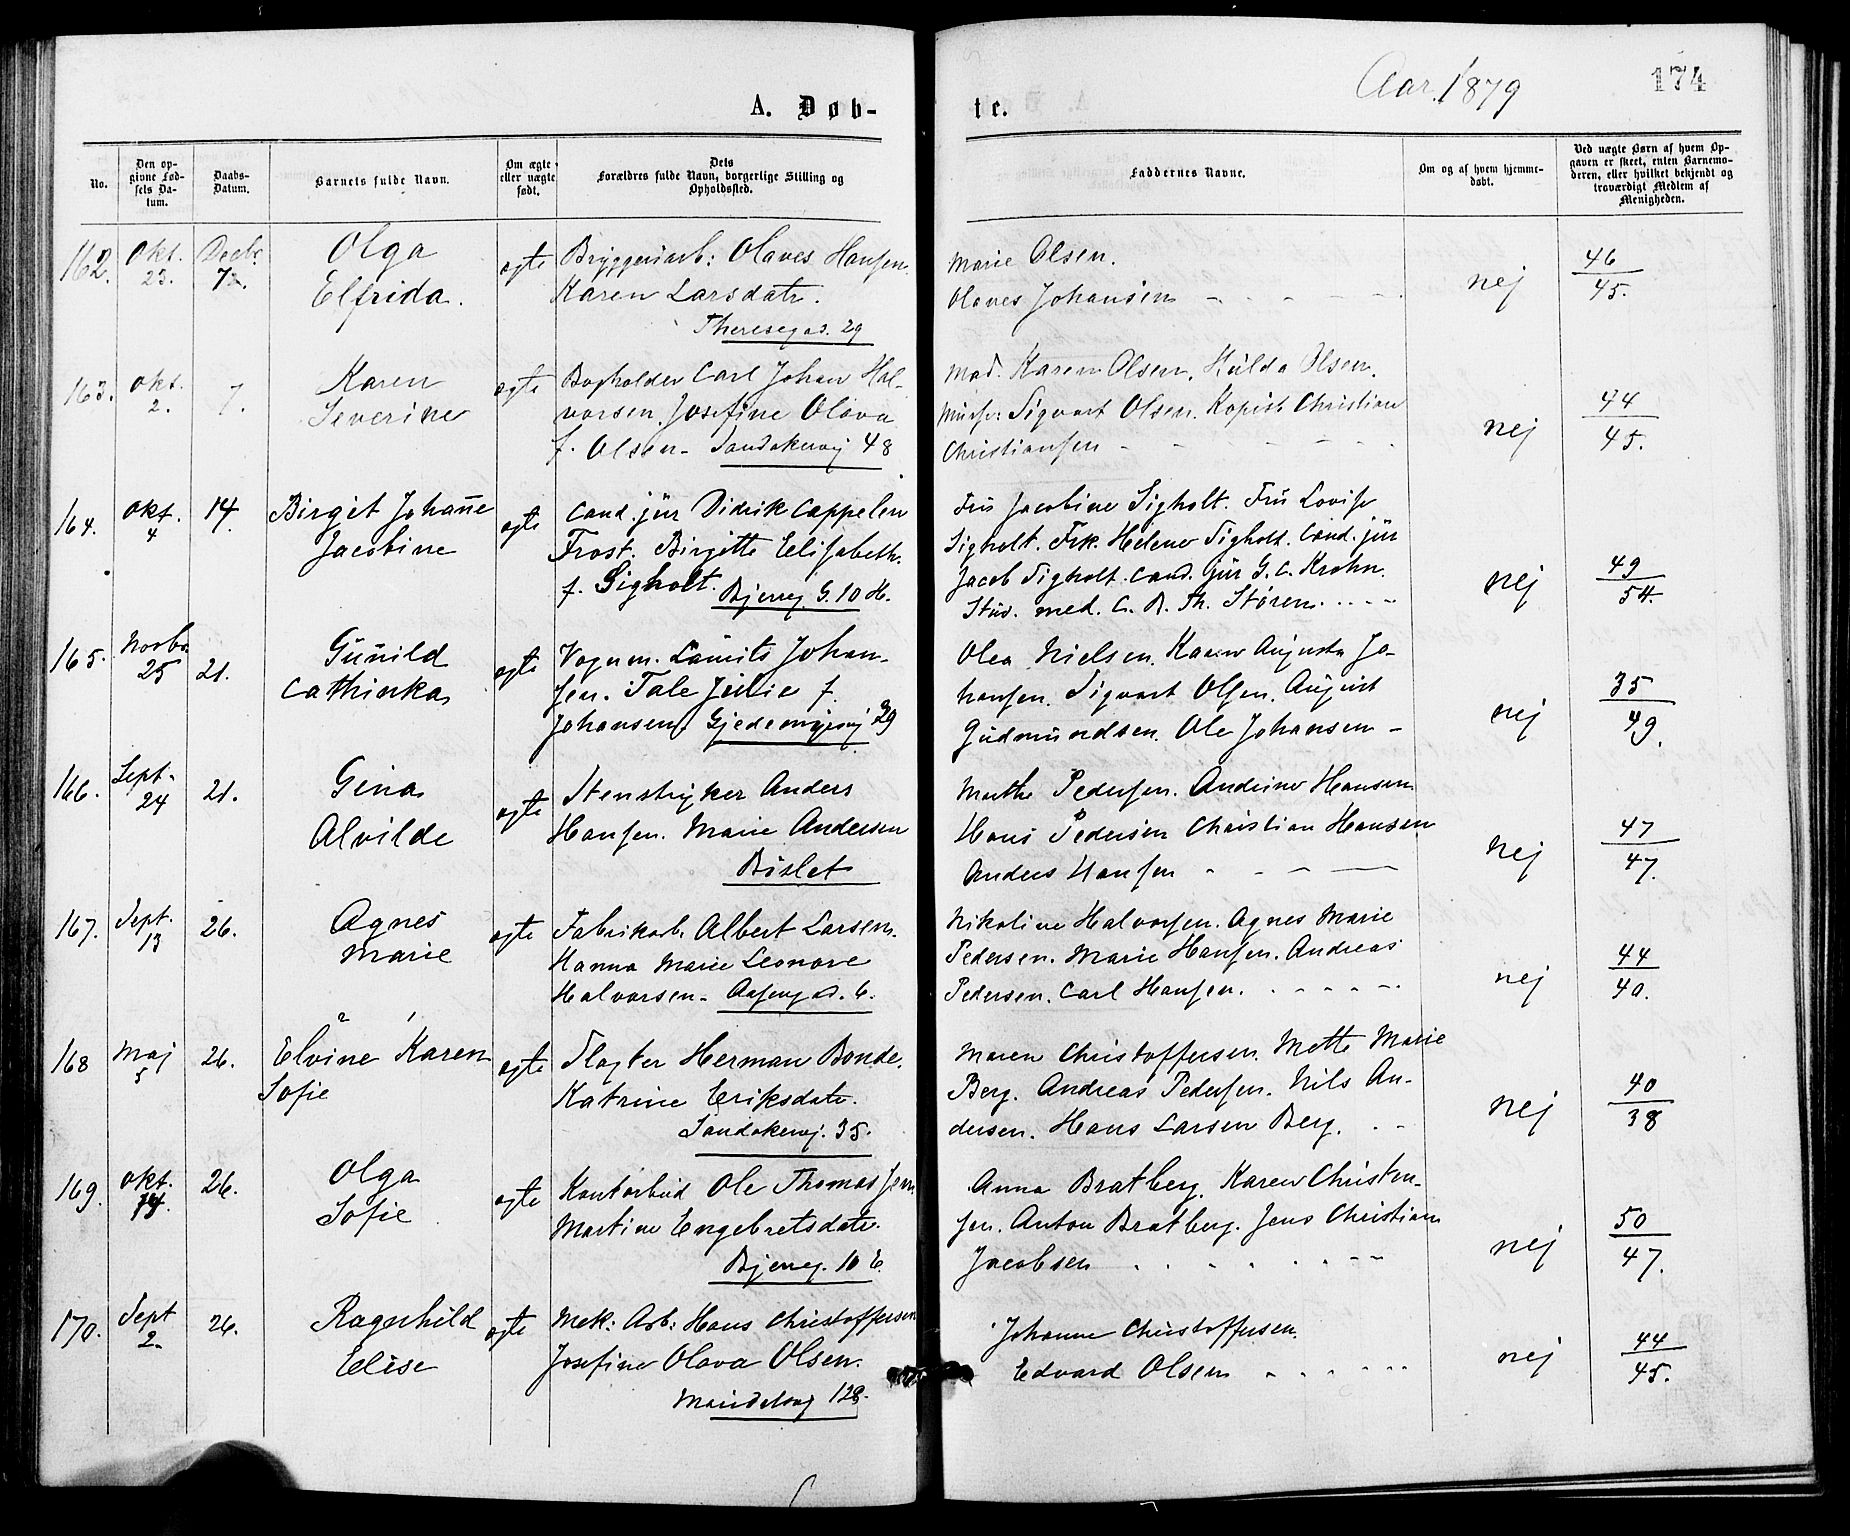 A. Døb-
te.
Aar 1879
174
No.
Den op-
givne Fød-
sels Da-
tum.
Daabs-
Datum.
Barnets fulde Navn.
Om ægte
eller uægte
født.
Dets
Forældres fulde Navn, borgerlige Stilling og
Opholdssted.
Faddernes Navne.
Om og af hvem hjemme-
døbt.
Ved uægte Børn af hvem Op-
gaven er skeet, enten Barnemo-
deren, eller hvilket bekjendt og
troværdigt Medlem af
Menigheden.
162. Okt. 23. Decbr. 7. Olga
Elfrida.
ægte
Bryggeriarb: Olaves Hansen.
Karen Larsdatr.
Theresegad. 29
Marie Olsen.
Olaves Johansen
nej
46
45.
163. Okt. 2. 7. Karen
Severine
ægte
Bogholder Carl Johan Hal-
vorsen. Josefine Olava
f. Olsen- Sandakervej 48
Mad. Karen Olsen. Hulda Olsen.
Sigvart Olsen. Kopist Christian
Christiansen
nej
44
45.
164. Okt. 4 14. Birgit Johanne
Jacobine
ægte
Cand. jur Didrik Cappelen
Frost. Birgitte Elisabeth.
f. Sigholt. Bjerreg. G. 10 H.
Fru Jacobine Sigholt. Fru Lovise
Sigholt. Frk. Helene Sigholt. Cand. jur
Jacob Sigholt. Cand. jur G. C. Krohn.
Stud. med. C. B. Th. Støren
nej
49
54.
165. Novbr 25 21. Gunild
Cathinka
ægte
Vognm. Laurits Johan-
sen. Tale Julie f.
Johansen. Gjedemyrsvej 29
Olea Nielsen. Karen Augusta Jo-
hansen. Sigvart Olsen. August
Gudmundsen. Ole Johansen -
nej
35
49.
166. Sept. 24 21. Gina
Alvilde
ægte
Stenstryker Anders
Hansen. Marie Andersen
Bislet
Marthe Pedersen. Andrine Hansen
Hans Pedersen Christian Hansen
Anders Hansen
nej
47
47.
167. Sept. 13 26. Agnes
Marie
ægte
Fabrikarb. Albert Larsen.
Hanna Marie Leonore
Halvorsen- Aasengd. 6.
Nikoline Halvorsen. Agnes Marie
Pedersen. Marie Hansen. Andreas
Pedersen. Carl Hansen.
nej
44
40.
168 Maj 5 26. Elvine Karen
Sofie
ægte
Slagter Herman Bonde.
Katrine Eriksdatr.
Sandakervj. 35.
Maren Christoffersen. Mette Marie
Berg. Andreas Pedersen. Nils An-
dersen. Hans Larsen Berg.
nej
40
38
169. Okt. 14. 26. Olga
Sofie
ægte
Kontorbud Ole Thomas
Martine Engebretsdatr.
Bjerreg. 10 E.
Anna Bratberg. Karen Christen-
sen. Anton Bratberg. Jens Christian
Jacobsen
nej
50
47.
170. Sept 2. 26. Ragnhild
Elise
ægte
Mek: Arb: Hans Christoffersen
Josefine Olava Olsen.
Maridalsvej 128.
Johanne Christoffersen.
Edvard Olsen
nej
44
45.